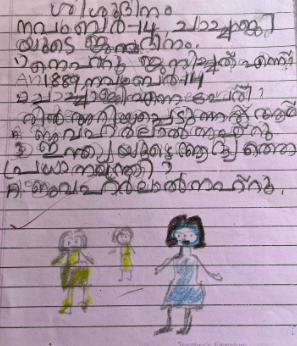 ശിശുദിനം
നവംബർ-14 ചാച്ചാജി
യുടെ ജന്മദിനം.
1) നെഹ്റു ജനിച്ചത് എന്ന്
An 1889 നവംബർ-14
2 ചാച്ചാജി എന്ന പേരി
ൽ അറിയപ്പെടുന്നത് ആര്
ജവഹർലാൽ നെഹ്റു
3) ഇന്ത്യയുടെ ആദ്യത്തെ
പ്രധാനമന്ത്രി?
A. ജവഹർലാൽ നഹ്റു.